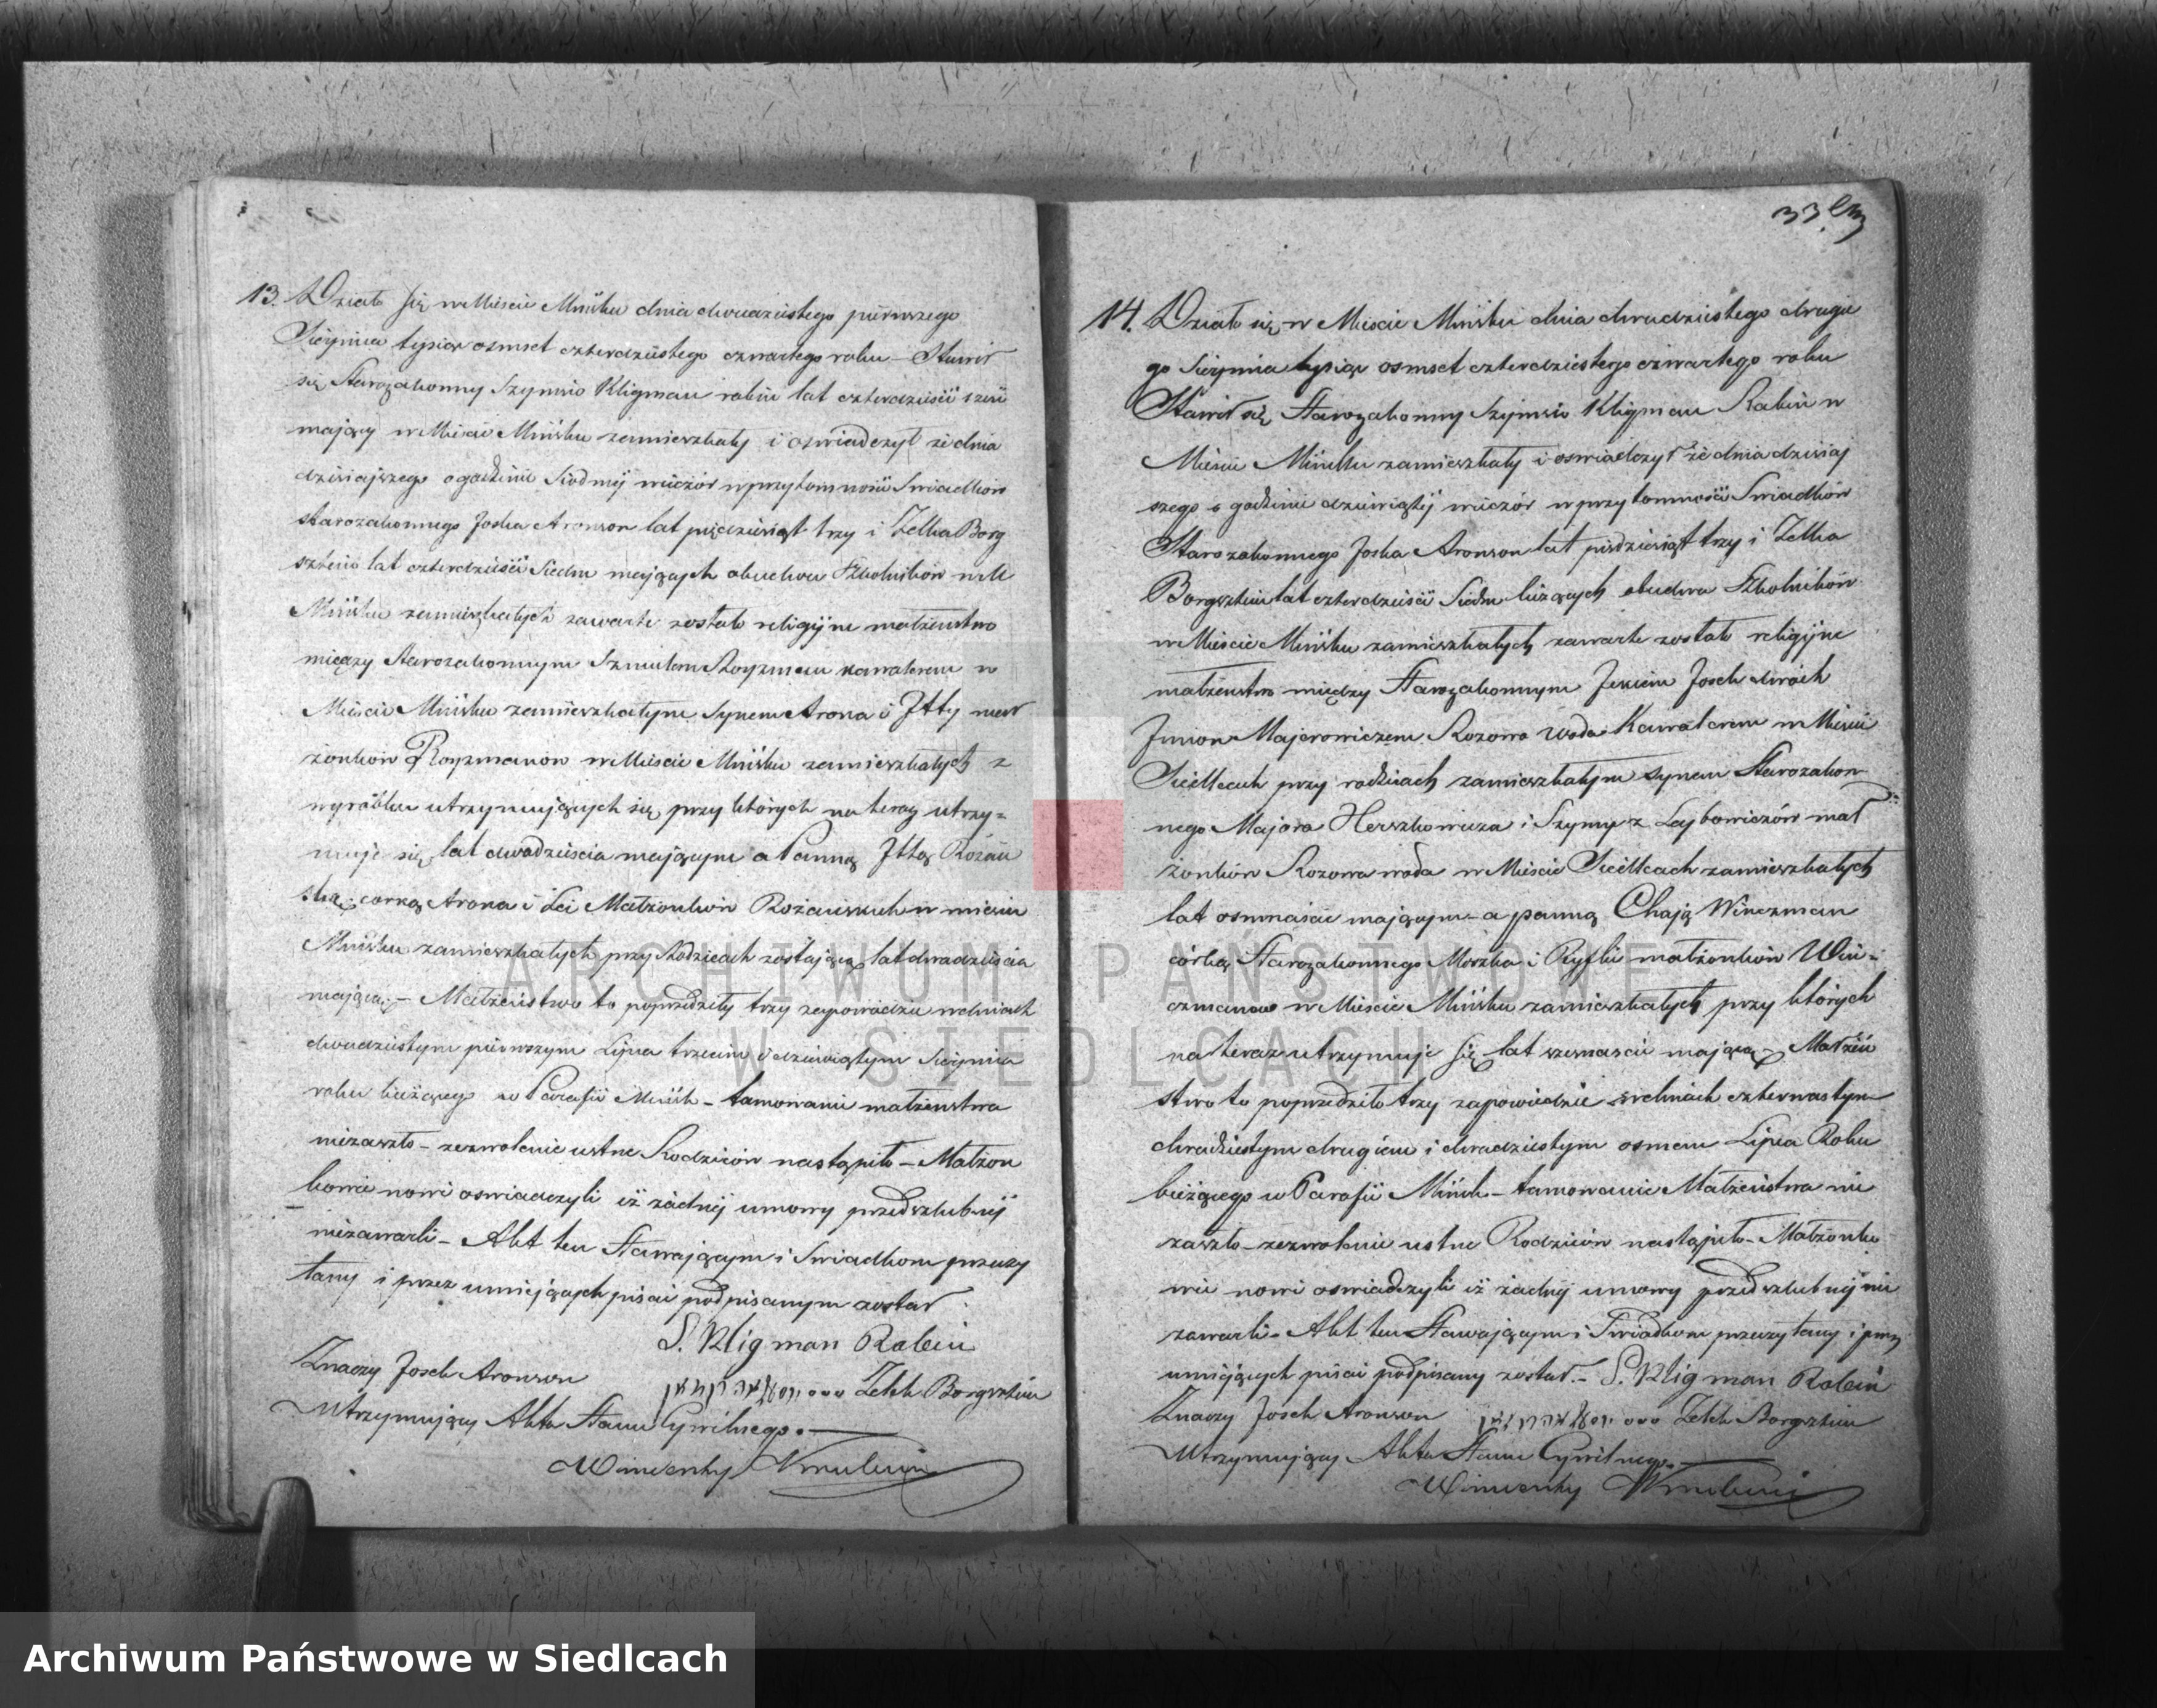 33.
13. Działo się w Mieście Mińsku dnia dwudziestego pierwszego
Sierpnia tysiąc osmset czterdziestego czwartego roku – Stawił
się Starozakonny Szymsio Kligman rabin lat czterdzieści
mający w Mieście Mińsku zamieszkały i oswiadczył że dnia
dzisiajszego o godzinie Siodmej wieczór w przytomności Swiadków
starozakonnego Joska Aronson lat pięćdziesiąt trzy i Zelka Borg
sztein lat czterdzieści Siedm mających obudwu Szkolników w M
Mińsku zamieszkałych zawarte zostało religijne małżeństwo
między Starozakonnym Szmulem Royzman kawalerem w
Mieście Mińsku zamieszkałym Synem Arona i Itty mał
żonków Royzmanow w Mieście Mińsku zamieszkałych z
wyrobku utrzymujących się, przy których na teraz utrzy=
muje się, lat dwadzieścia mającym a Panną Ittą Rożań
ską, corką Arona i Lei Małżonków Rożańskich w mieście
Mińsku zamieszkałych przy Rodzicach zostającą lat dwadzieścia
mającą. – Małżeństwo to poprzedziły trzy zapowiedzie w dniach
dwudziestym pierwszym Lipca trzecim i dziewiątym Sierpnia
roku bieżącego w Parafii Mińsk – tamowanie małżeństwa
niezaszło – zezwolenie ustne Rodziców nastąpiło – Małżon
kowie nowi oswiadczyli iż żadnej umowy przedszlubnej
niezawarli – Akt ten Stawającym i Swiadkom przeczy
tany i przez umiejących pisać podpisanym został
S. Kligman Rabin
Znaczy Josek Aronson Zelek Borgsztein
Utrzymujący Akta Stanu Cywilnego. –
Wincenty
14. Działo się w Mieście Mińsku dnia dwudziestego drugie
go Sierpnia tysiąc osmset czterdziestego czwartego roku
Stawił się Starozakonny Szymsio Kligman Rabin w
Mieście Mińsku zamieszkały i oswiadczył że dnia dzisiaj
szego o godzinie dziewiątej wieczór w przytomności Swiadków
Starozakonnego Joska Aronson lat pięćdziesiąt trzy i Zelka
Borgsztein lat czterdzieści Siedm liczących obudwu Szkolników
w Mieście Mińsku zamieszkałych zawarte zostało religijne
małżeństwo między Starozakonnym Josek dwóch
Imion Majorowiczem Rozowa woda Kawalerem w Mieście
Siedlcach przy rodzicach zamieszkałym synem Starozakon
nego Majora Herszkowicza i Szymy z Lejbowiczów mał
żonków Rozowa woda w Mieście Siedlcach zamieszkałych
lat osmnaście mającym – a panną Chają Winczman
córką Starozakonnego Moszka i Ryfki małżonków Win=
czmanow w Mieście Mińsku zamieszkałych przy których
na teraz utrzymuje się lat szesnascie mającą – Małżeń
stwo to poprzedziło trzy zapowiedzie w dniach czternastym
dwudziestym drugiem i dwudziestym osmem Lipca Roku
bieżącego w Parafii Mińsk – tamowanie Małżeństwa nie
zaszło – zezwolenie ustne Rodziców nastąpiło – Małżonko
wie nowi oswiadczyli iż żadnej umowy przedszlubnej nie
zawarli – Akt ten Stawającym i Swiadkom przeczytany i przez
umiejących pisać podpisany został. – S. Kligman Rabin
Znaczy Josek Aronson Zelek Borgsztein
Utrzymujący Akta Stanu Cywilnego. –
Wincenty
ARCHIWUM PAŃSTWOWE
W SIEDLCACH
Archiwum Państwowe w Siedlcach